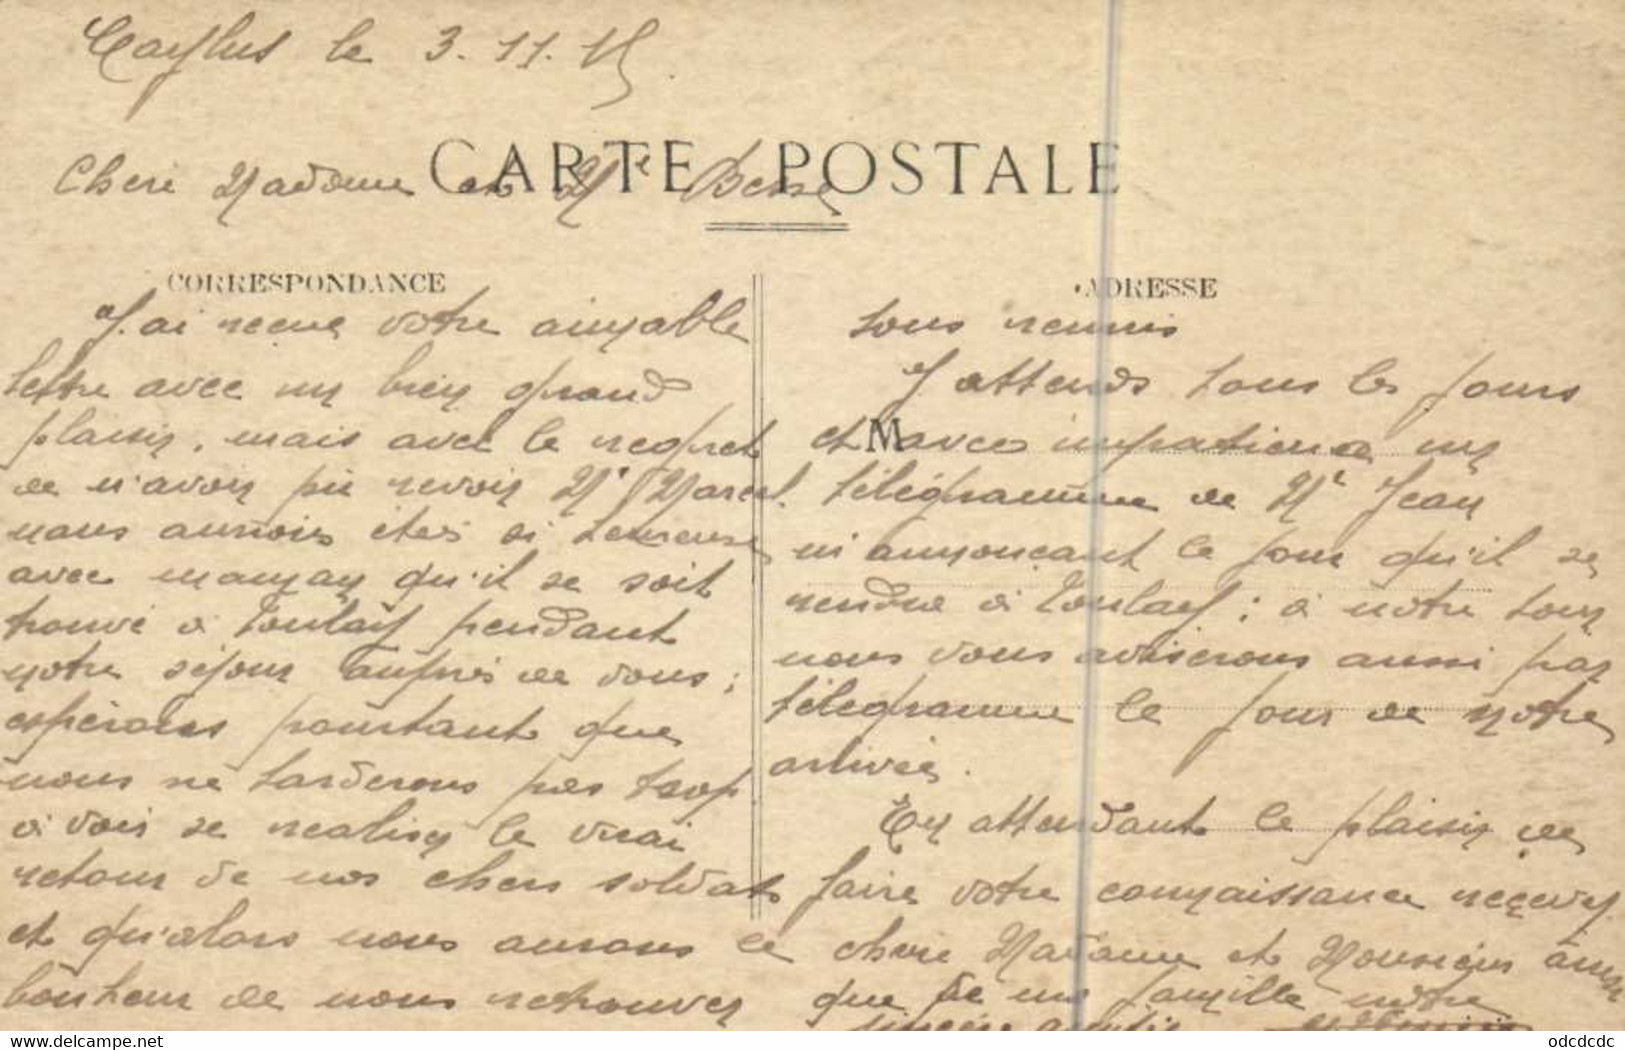 Caylus le 3.11.15.
CARTE POSTALE
Chere Madame et Mr Besse
CORRESPONDANCE
J'ai reçue votre aimable
lettre avec un bien grand
plaisir, mais avec le regret
de n'avoir pu revoir Mr Marcel.
nous aurions étés si heureuse
avec maman qu'il se soit
trouvé à Toulouse pendant
notre séjour auprès de vous ;
espérons pourtant que
nous ne tarderons pas trop
à voir se realiser le vrai
retour de nos chers soldats
et qu'alors nous aurons le
bonheur de nous retrouver
ADRESSE
tous reunis
J'attends tous les jours
et avec impatience un
M
télégramme de Mr Jean
m'annonçant le jour qu'il se
rendra à ; à notre tour
nous vous aviserons aussi par
télégramme le jour de notre
arrivée.
En attendant le plaisir de
faire votre connaissance recevez
chere Madame et Monsieur ainsi
que de ma famille notre
sincère amitié
www.delcampe.net
odcdcdc